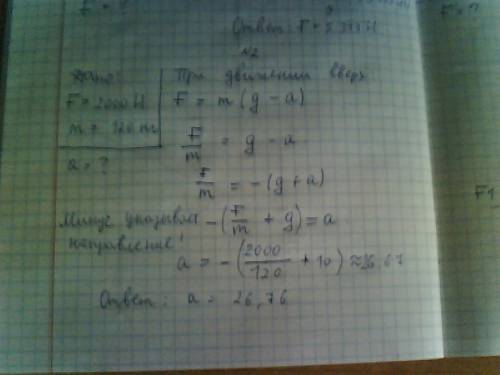 F = ?
Ответ: F =
№2
Дано:
F = 2000 Н
m = 120 кг
a = ?
При движении вверх
F = m (g - a)
F/m = g - a
F/m = -(g + a)
Минус указывает
направление!
-(F/m + g) = a
a = -(2000/120 + 10) ≈ 26,67
Ответ: a = 26,76
F = ?
F1